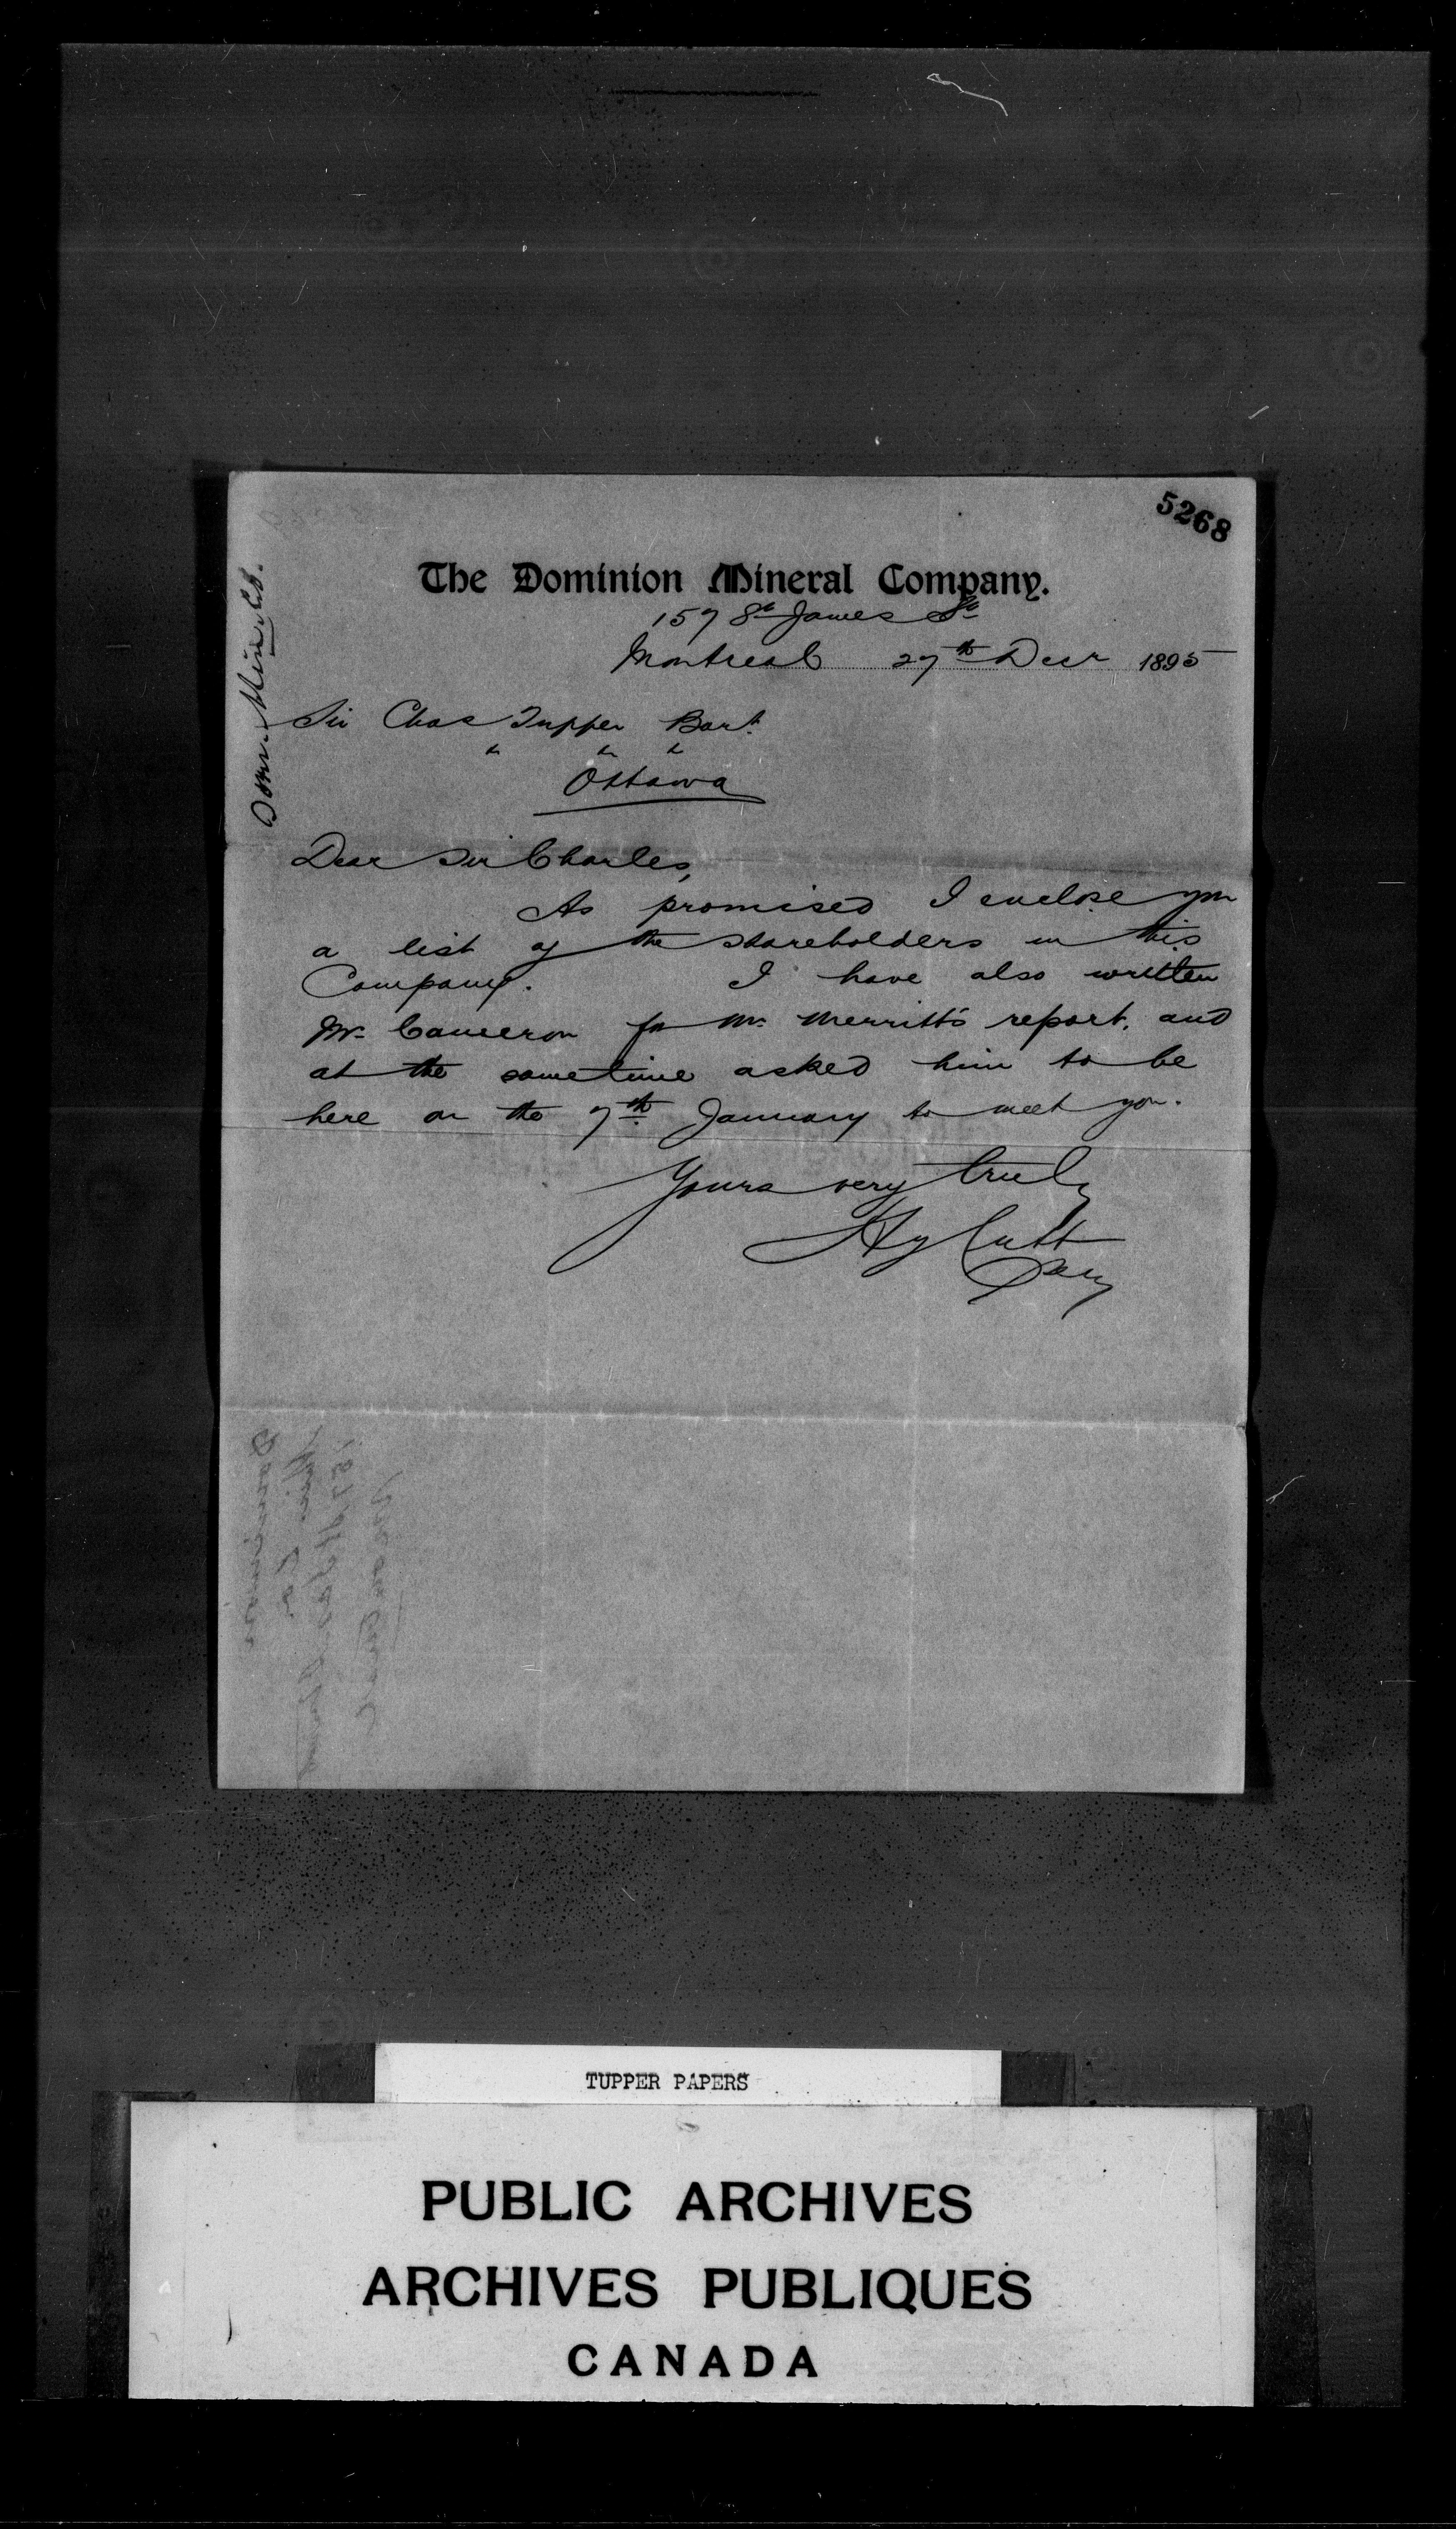 5268
Dom. Min. Co.
The Dominion Mineral Company.
157 St James St
Montreal 27th Decr 1895
Sir Chas Tupper Bart.
" " "
Ottawa
Dear Sir Charles,
As promised I enclose you
a list of the shareholders in this
Company. I have also written
Mr. Cameron for Mr. Merritt's report, and
at the sametime asked him to be
here on the 7th January to meet you.
Yours very truly
Hy Cutt
Secy
TUPPER PAPERS
PUBLIC ARCHIVES
ARCHIVES PUBLIQUES
CANADA